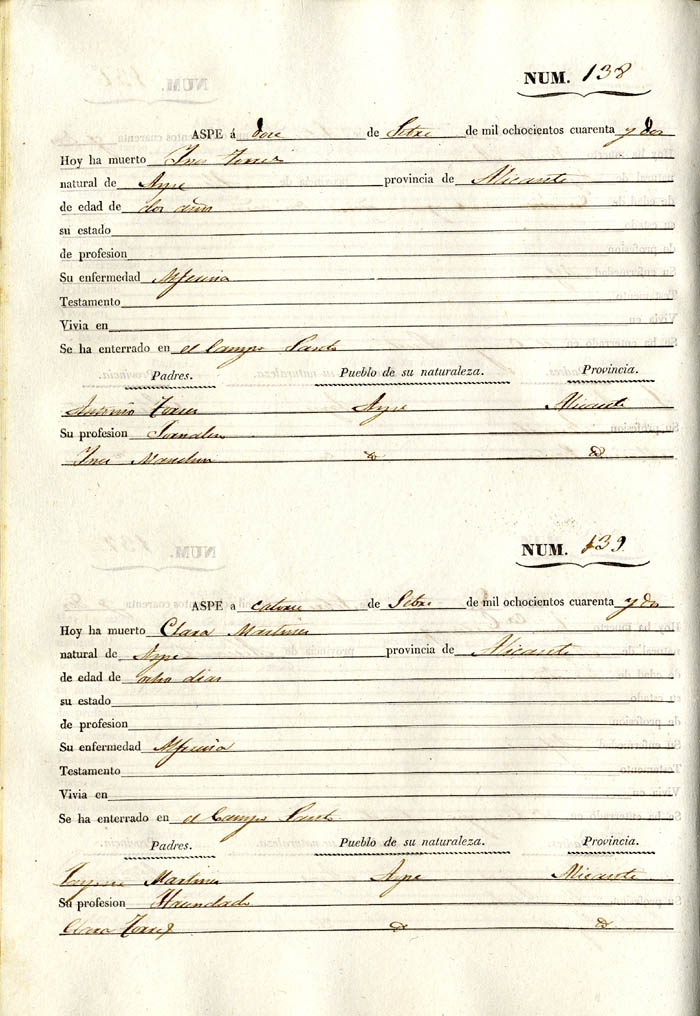 NUM. 138
ASPE á doce de Setre de mil ochocientos cuarenta y dos
Hoy ha muerto Ines Torres
natural de Aspe provincia de Alicante
de edad de dos años
su estado
de profesion
Su enfermedad Alferecia
Testamento
Vivia en
Se ha enterrado en el Campo Santo
Padres. Pueblo de su naturaleza. Provincia.
Antonio Torres Aspe Alicante
Su profesion
Ines
NUM. 139
ASPE a catorce de Setre de mil ochocientos cuarenta y dos
Hoy ha muerto Clara Martinez
natural de Aspe provincia de Alicante
de edad de ocho dias
su estado
de profesion
Su enfermedad Alferecia
Testamento
Vivia en
Se ha enterrado en el Campo Santo
Padres. Pueblo de su naturaleza. Provincia.
Martinez Aspe Alicante
Su profesion
Clara Torres